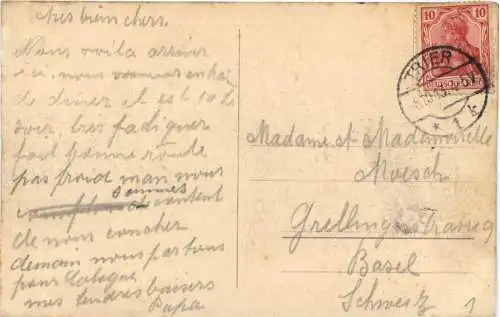 mes bien chers.
Nous voila arriver
ici, nous sommes entrain
de diner il est 10 h
soir, très fatiguer
fait bonne route
pas froid man nous
sommes
content
de nous coucher
demain nous partons
pour Cologne
mes tendres baisers
Papa
10
TRIER
1
k
Madame et Mademoiselle
Moesch
Grellingerstrasse 9
Basel
Schweiz
1